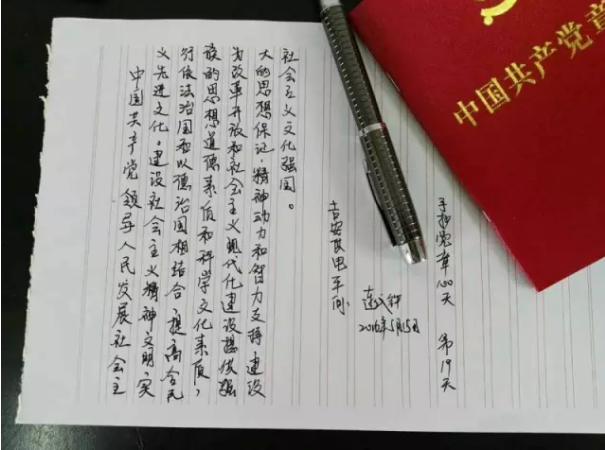 中国共产党领导人民发展社会主
义先进文化。建设社会主义精神文明,实
行依法治国和以德治国相结合,提高全民
族的思想道德素质和科学文化素质,
为改革开放和社会主义现代化建设提供强
大的思想保证、精神动力和智力支持,建设
社会主义文化强国。
车间
2016年5月15日
手抄党章100天 第19天
中国共产党章